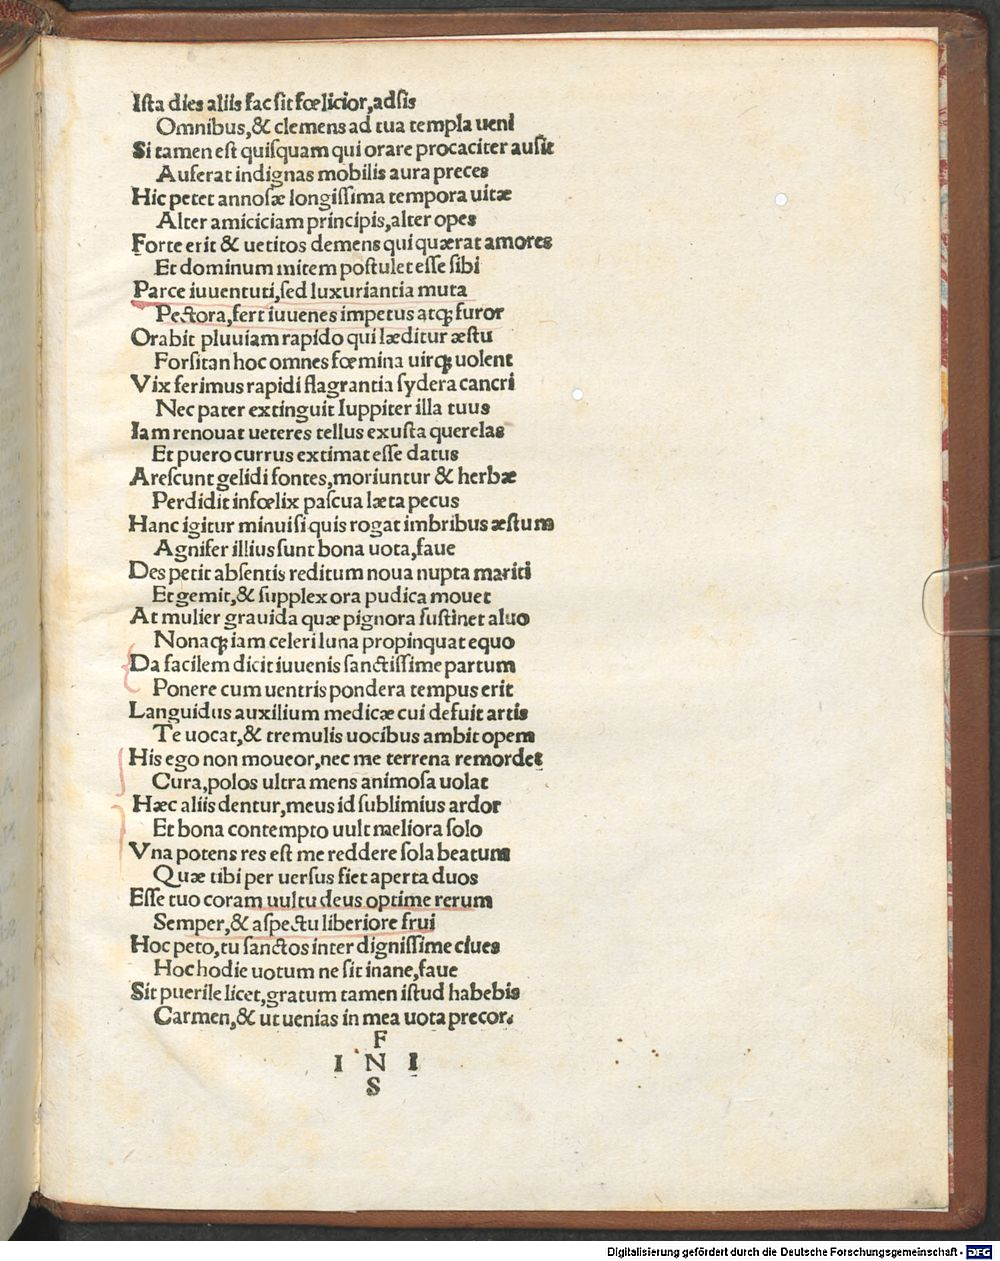 Ista dies aliis fac sit fœlicior, adsis
Omnibus, & clemens ad tua templa ueni
Si tamen est quisquam qui orare procaciter ausit
Auferat indignas mobilis aura preces
Hic petet annosæ longissima tempora uitæ
Alter amiciciam principis, alter opes
Forte erit & uetitos demens qui quærat amores
Et dominum mitem postulet esse sibi
Parce iuuentuti, sed luxuriantia muta
Pectora, fert iuuenes impetus atqꝫ furor
Orabit pluuiam rapido qui læditur æstu
Forsitan hoc omnes fœmina uirqꝫ uolent
Vix ferimus rapidi flagrantia sydera cancri
Nec pater extinguit Iuppiter illa tuus
Iam renouat ueteres tellus exusta querelas
Et puero currus extimat esse datus
Arescunt gelidi fontes, moriuntur & herbæ
Perdidit infœlix pascua læta pecus
Hanc igitur minui si quis rogat imbribus æstum
Agnifer illius sunt bona uota, faue
Des petit absentis reditum noua nupta mariti
Et gemit, & supplex ora pudica mouet
At mulier grauida quæ pignora sustinet aluo
Nonaqꝫ iam celeri luna propinquat equo
Da facilem dicit iuuenis sanctissime partum
Ponere cum uentris pondera tempus erit
Languidus auxilium medicæ cui defuit artis
Te uocat, & tremulis uocibus ambit opem
His ego non moueor, nec me terrena remordet
Cura, polos ultra mens animosa uolat
Hæc aliis dentur, meus id sublimius ardor
Et bona contempto uult meliora solo
Vna potens res est me reddere sola beatum
Quæ tibi per uersus fiet aperta duos
Esse tuo coram uultu deus optime rerum
Semper, & aspectu liberiore frui
Hoc peto, tu sanctos inter dignissime ciues
Hoc hodie uotum ne sit inane, faue
Sit puerile licet, gratum tamen istud habebis
Carmen, & ut uenias in mea uota precor.
F
I N I
S
Digitalisierung gefördert durch die Deutsche Forschungsgemeinschaft - DFG